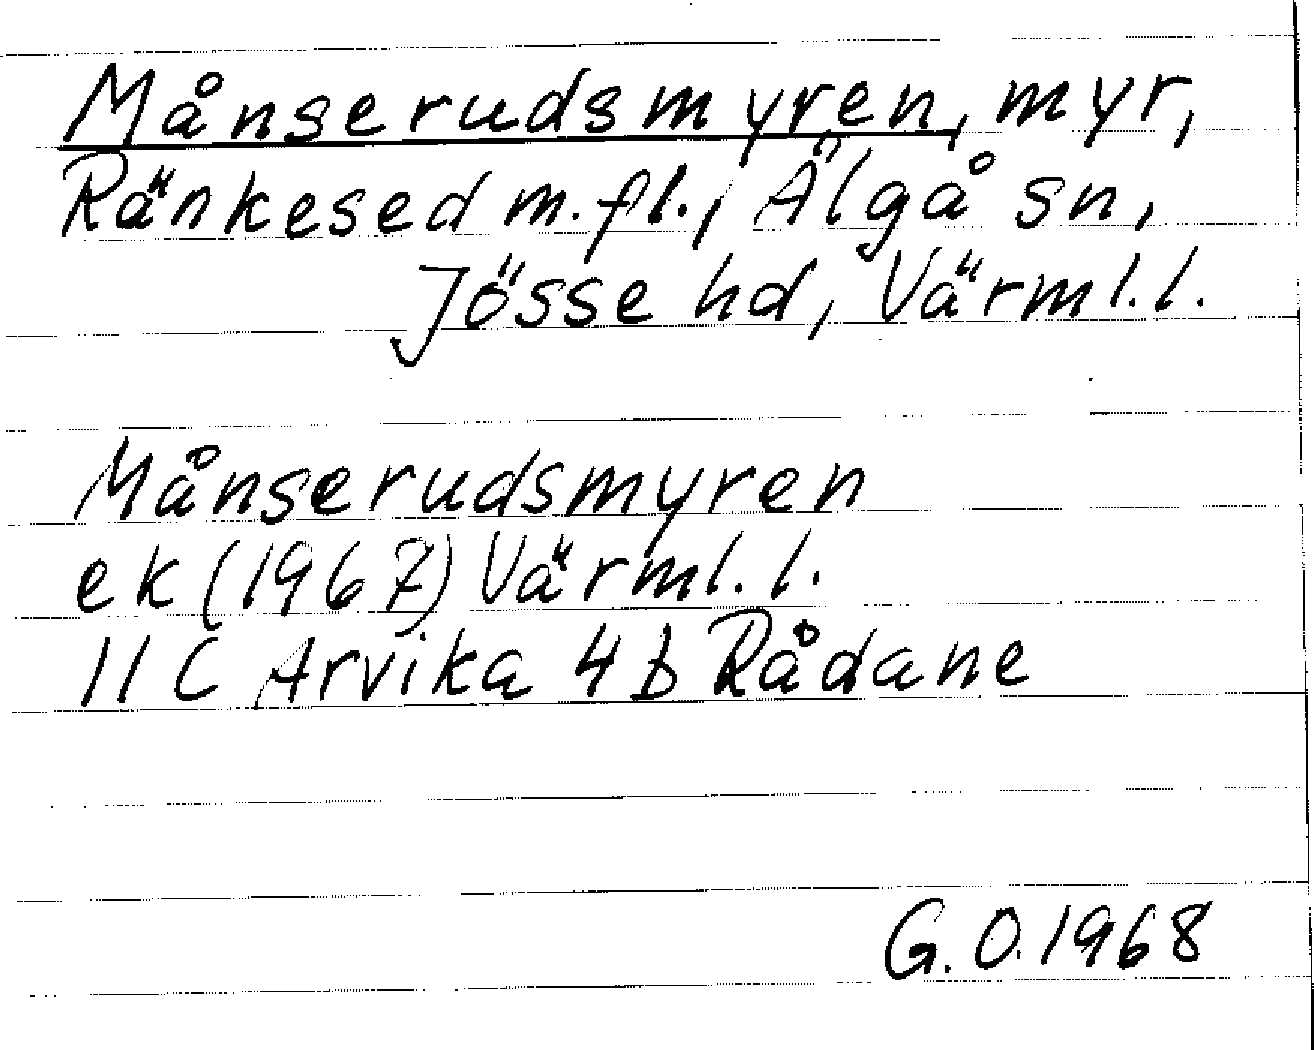 Månserudsmyren, myr,
Ränkesed m.fl., Älgå sn,
Jösse hd, Värml.l.
Månserudsmyren
ek (1967) Värml.l.
11 C Arvika 4 b Rådane
G.O. 1968